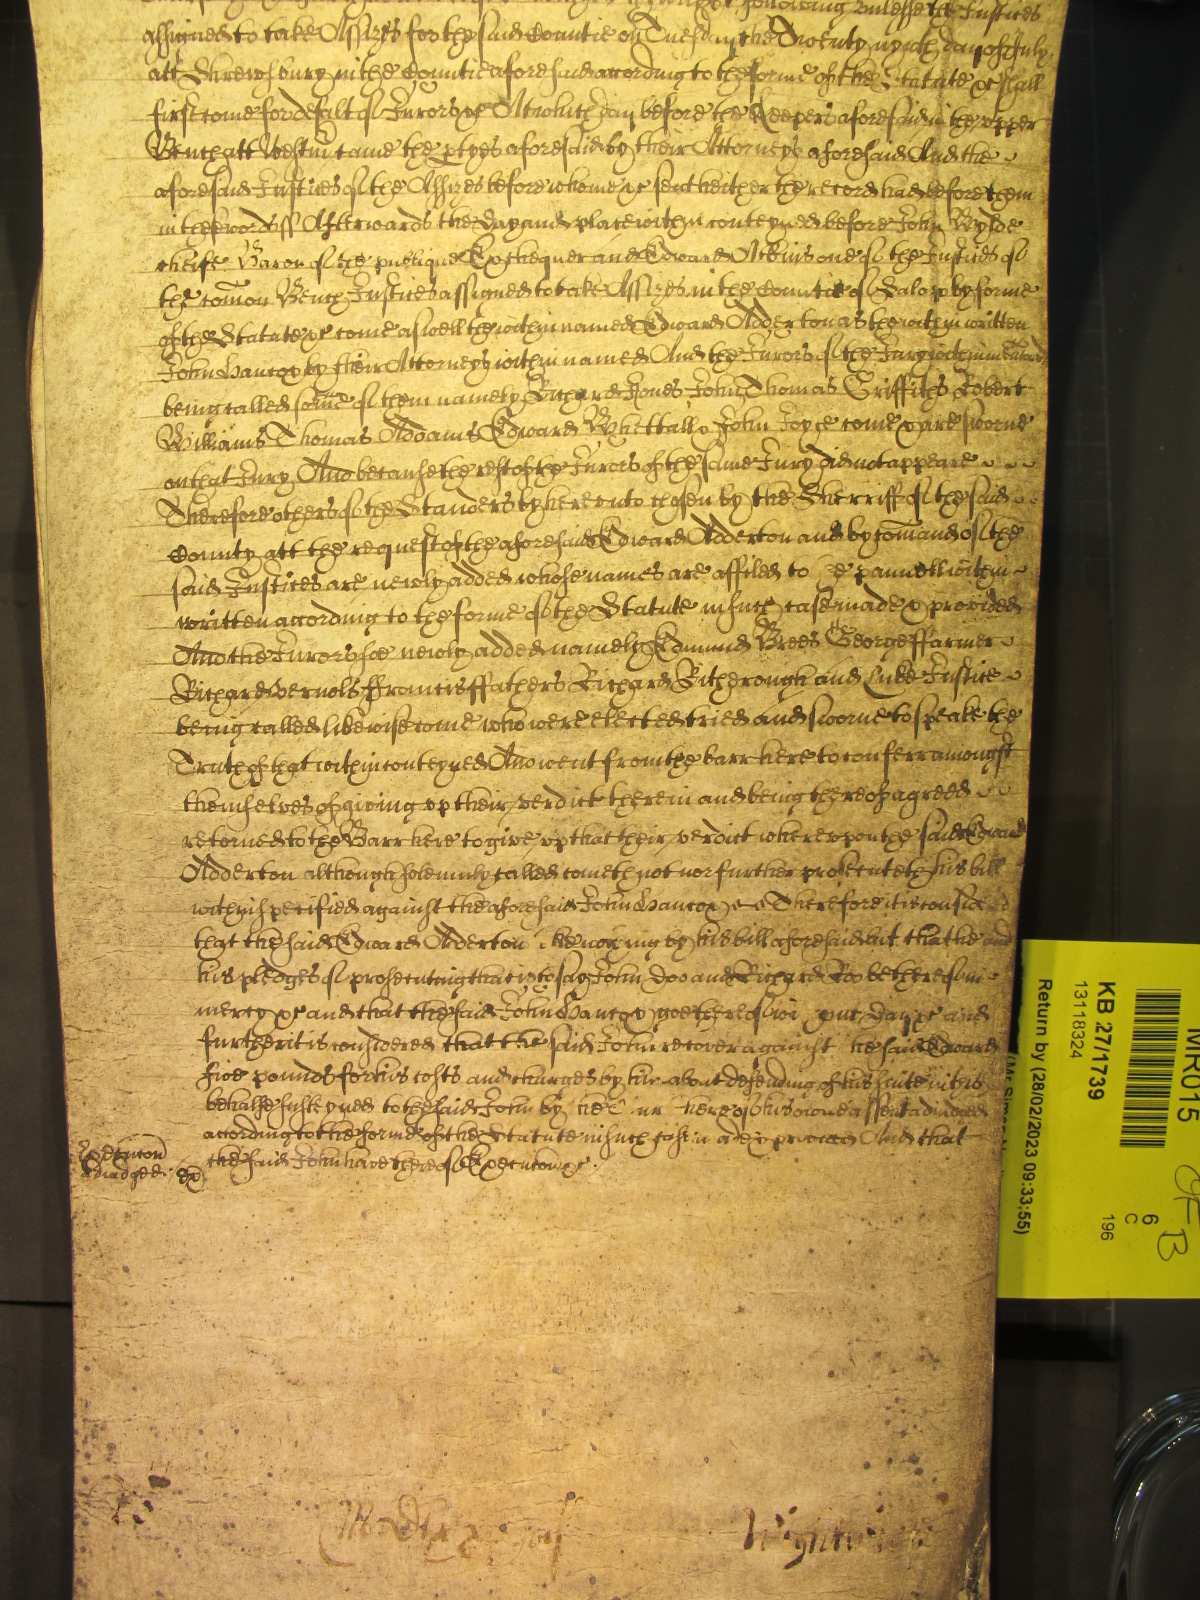 following unlesse the Justices
assigned to take Assizes for the said Countie on Tuesday the Twenty nynth day of July
att Shrewsbury in the Countie aforesaid according to the forme of the Statute &c shall
first come for default of Jurors &c Att which day before the Keepers aforesaid in the upper
Bench att Westm came the ptyes aforesaid by their Attorneys aforesaid And the
aforesaid Justices of the Assizes before whome &c sent hither the record had before them
in these words ss Afterwards the day and place within conteyned before John Wylde
cheife Baron of the publique Exchequer and Edward Atkins one of the Justices of
the comon Bench Justices assigned to take Assizes in the Countie of Salop by forme
of the Statute &c come aswell the within named Edward Adderton as the within written
John Hancox by their Attorneys within named And the Jurors of the Jury within menconed
being called some of them namely Richard Jones John Thomas Griffiths Robert
Williams Thomas Addams Edward Whettall & John Joyce come & are sworne
on that Jury And because the rest of the Jurors of the same Jury did not appeare
Therefore others of the Standers by hereunto chosen by the Sherriff of the said
County att the request of the aforesaid Edward Adderton and by comand of the
said Justices are newly added whose names are affiled to the pannell within
written according to the forme of the Statute in such case made & provided
And the Jurors soe newly added namely Edmund Brees George ffarmer
Richard Vernols ffrancis ffathers Richard Ritherough and Luke Justice
being called likewise come who were elected tried and sworne to speake the
Truth of that within conteyned And went from the barr here to conferr amongst
themselves of giving up their verdict therein and being thereof agreed
retorned to the Barr here to give up that their verdict whereupon the said Edward
Adderton although solemnly called cometh not nor further prosecuteth his bill
within specified against the aforesaid John Hancox Therefore it is considered
that the said Edward Adderton take nothing by his bill aforesaid but that he and
his pledges of prosecuting that is to say John Doo and Richard Roo be thereof in
mercy &c and that the said John Hancox goe thereof wi out day &c and
further it is considered that the said John recover against the said Edward
five pounds for his costs and charges by him about defending of his suite in this
behalfe susteyned to the said John by the Court here of his owne assent adiudged
according to the forme of the Statute in such case made & provided And that
the said John have thereof Execucon &c
Execucon
Adiudged
ex
KB 27/1739
13118324
Return by (28/02/2023 09:33:55)
MR015
6
C
196